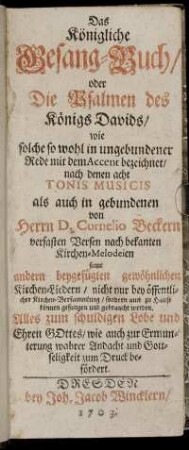 Das
Königliche
Gesang-Buch/
oder
Die Psalmen des
Königs Davids/
wie
solche so wohl in ungebundener
Rede mit dem Accent bezeichnet/
nach denen acht
TONIS MUSICIS
als auch in gebundenen
von
Herrn D. Cornelio Beckern
verfaßten Versen nach bekanten
Kirchen-Melodeien
samt
andern beygefügten gewöhnlichen
Kirchen-Liedern / nicht nur bey öffentli-
cher Kirchen-Versammlung / sondern auch zu Hause
können gesungen und gebraucht werden,
Alles zum schuldigen Lobe und
Ehren GOttes/ wie auch zur Ermun-
terung wahrer Andacht und Gott-
seligkeit zum Druck be-
fördert.
DRESDEN
bey Joh. Jacob Wincklern/
1703.